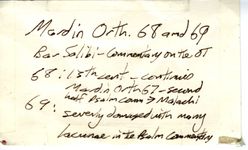 Mardin Orth. 68 and 69
Bar Salibi - Commentary on the OT
68: 18th cent - continues
Mardin Orth 67 - second
half Psalm Comm → Malachi
69: severely damaged with many
lacunae in the Psalm Commentary